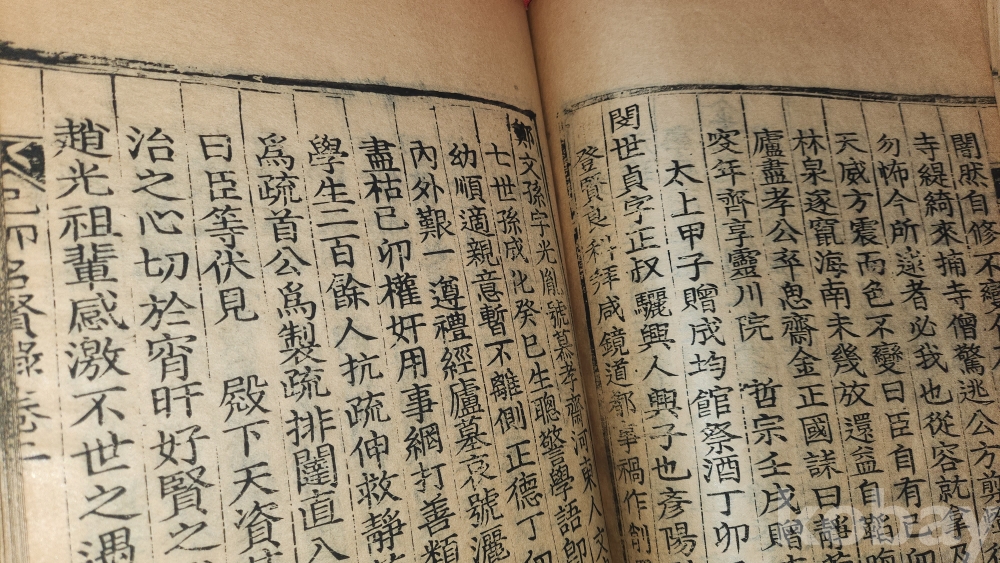 闇然自修不變
寺緹綺來捕寺僧驚逃公方剪
勿怖今所逮者必我也從容就拿及
天威方震而色不變曰臣自有己卯
林泉遂竄海南未幾放還益自韜晦
廬盡孝公卒息齋金正國誄曰靜
窆年齊享靈川院 哲宗壬戌贈
太上甲子贈成均館祭酒丁卯
閔世貞字正叔驪興人興子也彦陽
登賢良科拜咸鏡道都事禍作削
鄭文孫字光胤號慕孝齋河東人文
七世孫成化癸巳生聰警學語即
幼順適親意暫不離側正德丁卯
內外艱一遵禮經廬墓哀號灑
盡枯己卯權奸用事網打善類
學生二百餘人抗疏伸救靜
爲疏首公爲製疏排闥直入
曰臣等伏見 殿下天資
治之心切於宵旰好賢之
趙光祖輩感激不世之遇
己卯名賢錄卷二
kobay